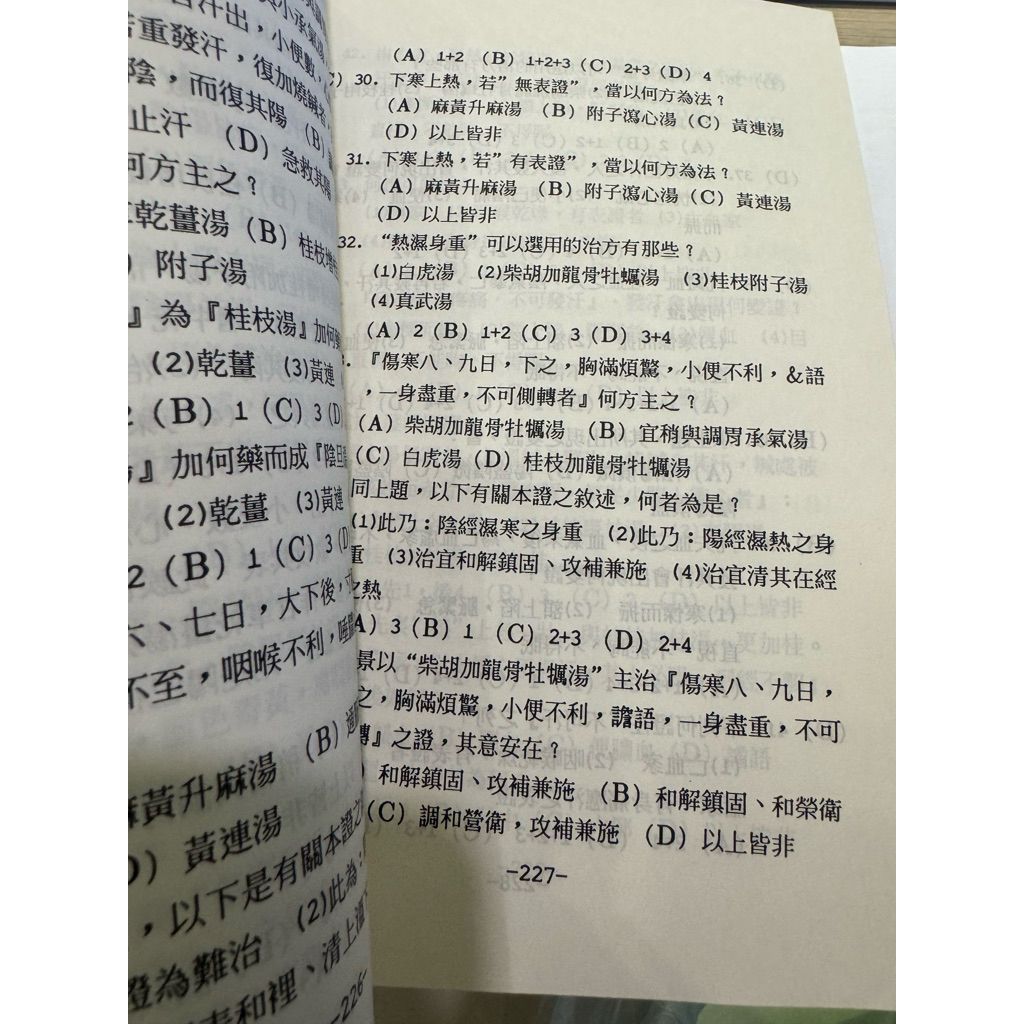 小承氣湯
汗出，小便數，
重發汗，復加燒鍼
陰，而復其陽 (B)
止汗 (D) 急救其陽
何方主之？
乾薑湯 (B) 桂枝增
) 附子湯
』為『桂枝湯』加何藥
(2)乾薑 (3)黃連
2 (B) 1 (C) 3 (D)
』加何藥而成『陰旦湯
(2)乾薑 (3)黃連
2 (B) 1 (C) 3 (D
六、七日，大下後，寸
不至，咽喉不利，唾
麻黃升麻湯 (B)
D) 黃連湯
，以下是有關本證之
證為難治 (2)此為：
表和裡、清上溫
-226-
(A) 1+2 (B) 1+2+3 (C) 2+3 (D) 4
) 30. 下寒上熱，若”無表證”，當以何方為法？
(A) 麻黃升麻湯 (B) 附子瀉心湯 (C) 黃連湯
(D) 以上皆非
31. 下寒上熱，若”有表證”，當以何方為法？
(A) 麻黃升麻湯 (B) 附子瀉心湯 (C) 黃連湯
(D) 以上皆非
32. “熱濕身重”可以選用的治方有那些？
(1)白虎湯 (2)柴胡加龍骨牡蠣湯 (3)桂枝附子湯
(4)真武湯
(A) 2 (B) 1+2 (C) 3 (D) 3+4
. 『傷寒八、九日，下之，胸滿煩驚，小便不利，＆語
，一身盡重，不可側轉者』何方主之？
(A) 柴胡加龍骨牡犡湯 (B) 宜稍與調胃承氣湯
(C) 白虎湯 (D) 桂枝加龍骨牡犡湯
同上題，以下有關本證之敘述，何者為是？
(1)此乃：陰經濕寒之身重 (2)此乃：陽經濕熱之身
重 (3)治宜和解鎮固、攻補兼施 (4)治宜清其在經
之熱
A) 3 (B) 1 (C) 2+3 (D) 2+4
景以“柴胡加龍骨牡犡湯”主治『傷寒八、九日，
之，胸滿煩驚，小便不利，譫語，一身盡重，不可
轉』之證，其意安在？
) 和解鎮固、攻補兼施 (B) 和解鎮固、和榮衛
(C) 調和營衛，攻補兼施 (D) 以上皆非
-227-